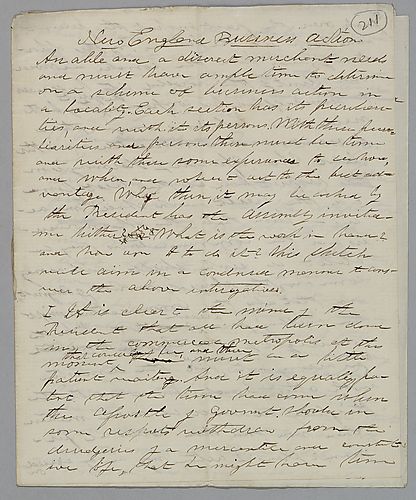 211
New England Business action
An able and a discreet merchant needs
and must have ample time to determine
on a scheme of business action in
a locality. Each section has its peculiari-
ties, and with it its persons. With these pecu-
liarities and persons there must be time
and with them some experience to
and when, and to act to the best ad-
vantage. Why then, it may be asked by
the President has the Assembly invited
me hither? What is the work in hand?
and how am I to do it? this sketch
will aim in a condensed manner to ans-
wer the above interrogatives.
I It is clear to the mind of the
President that all has been done
in the commercial metropolis at this
moment that can be, and there must be a little
patient waiting. And it is equally
that the time has come when
the apostle of should in
some respects withdraw from the
drudgeries of a mercantile and
life, that he might have time